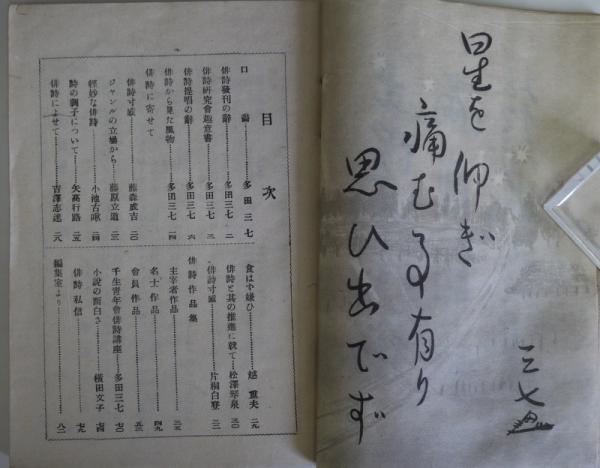 星を仰ぎ
痛む事有り
思ひ出でず
三七
目次
口論 多田三七
俳詩發刊の辭 多田三七 二
俳詩研究會趣意書 多田三七 三
俳詩提唱の辭 多田三七 六
俳詩から見た風物 多田三七 一四
俳詩に寄せて
俳詩寸感 藤森成吉 二〇
ジャンルの立場から 藤原立道 二三
輕妙な俳詩 小池古啾 二四
詩の調子について 矢高行路 二五
俳詩によせて 吉澤志逑 二八
食はず嫌ひ 越重夫 二九
俳詩と其の推進に就て 松澤翠泉 三〇
俳詩寸感 片桐白登 三二
俳詩作品集
主宰者作品 三五
名士作品 四九
會員作品 五三
千生青年會俳詩講座 多田三七 七〇
小說の面白さ 横田文子 七四
俳詩私信 七九
編集室より 八一